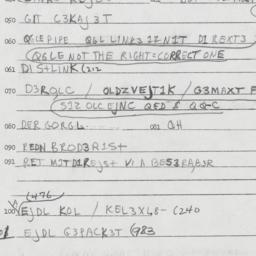 050 GIT C3KAJ3T
060 QGLEPIPE QGL LINKS 1ZN1T DIREXT3
QGLE NOT THE RIGHT=CORRECT ONE
061 DISTLINK (212
070 D3RQLC / OLDZVEJT1K / G3MAXT F
S1Z OLC EJNC QED & QQ-C
080 DER GORGL. 081 QH
090 REDN BROD3R1S+
091 RET M1TD1REJS+ VIA BES3RABJR
(476
100 EJDL KOL / KEL3X68- (240
EJDL G3PACK3T (983